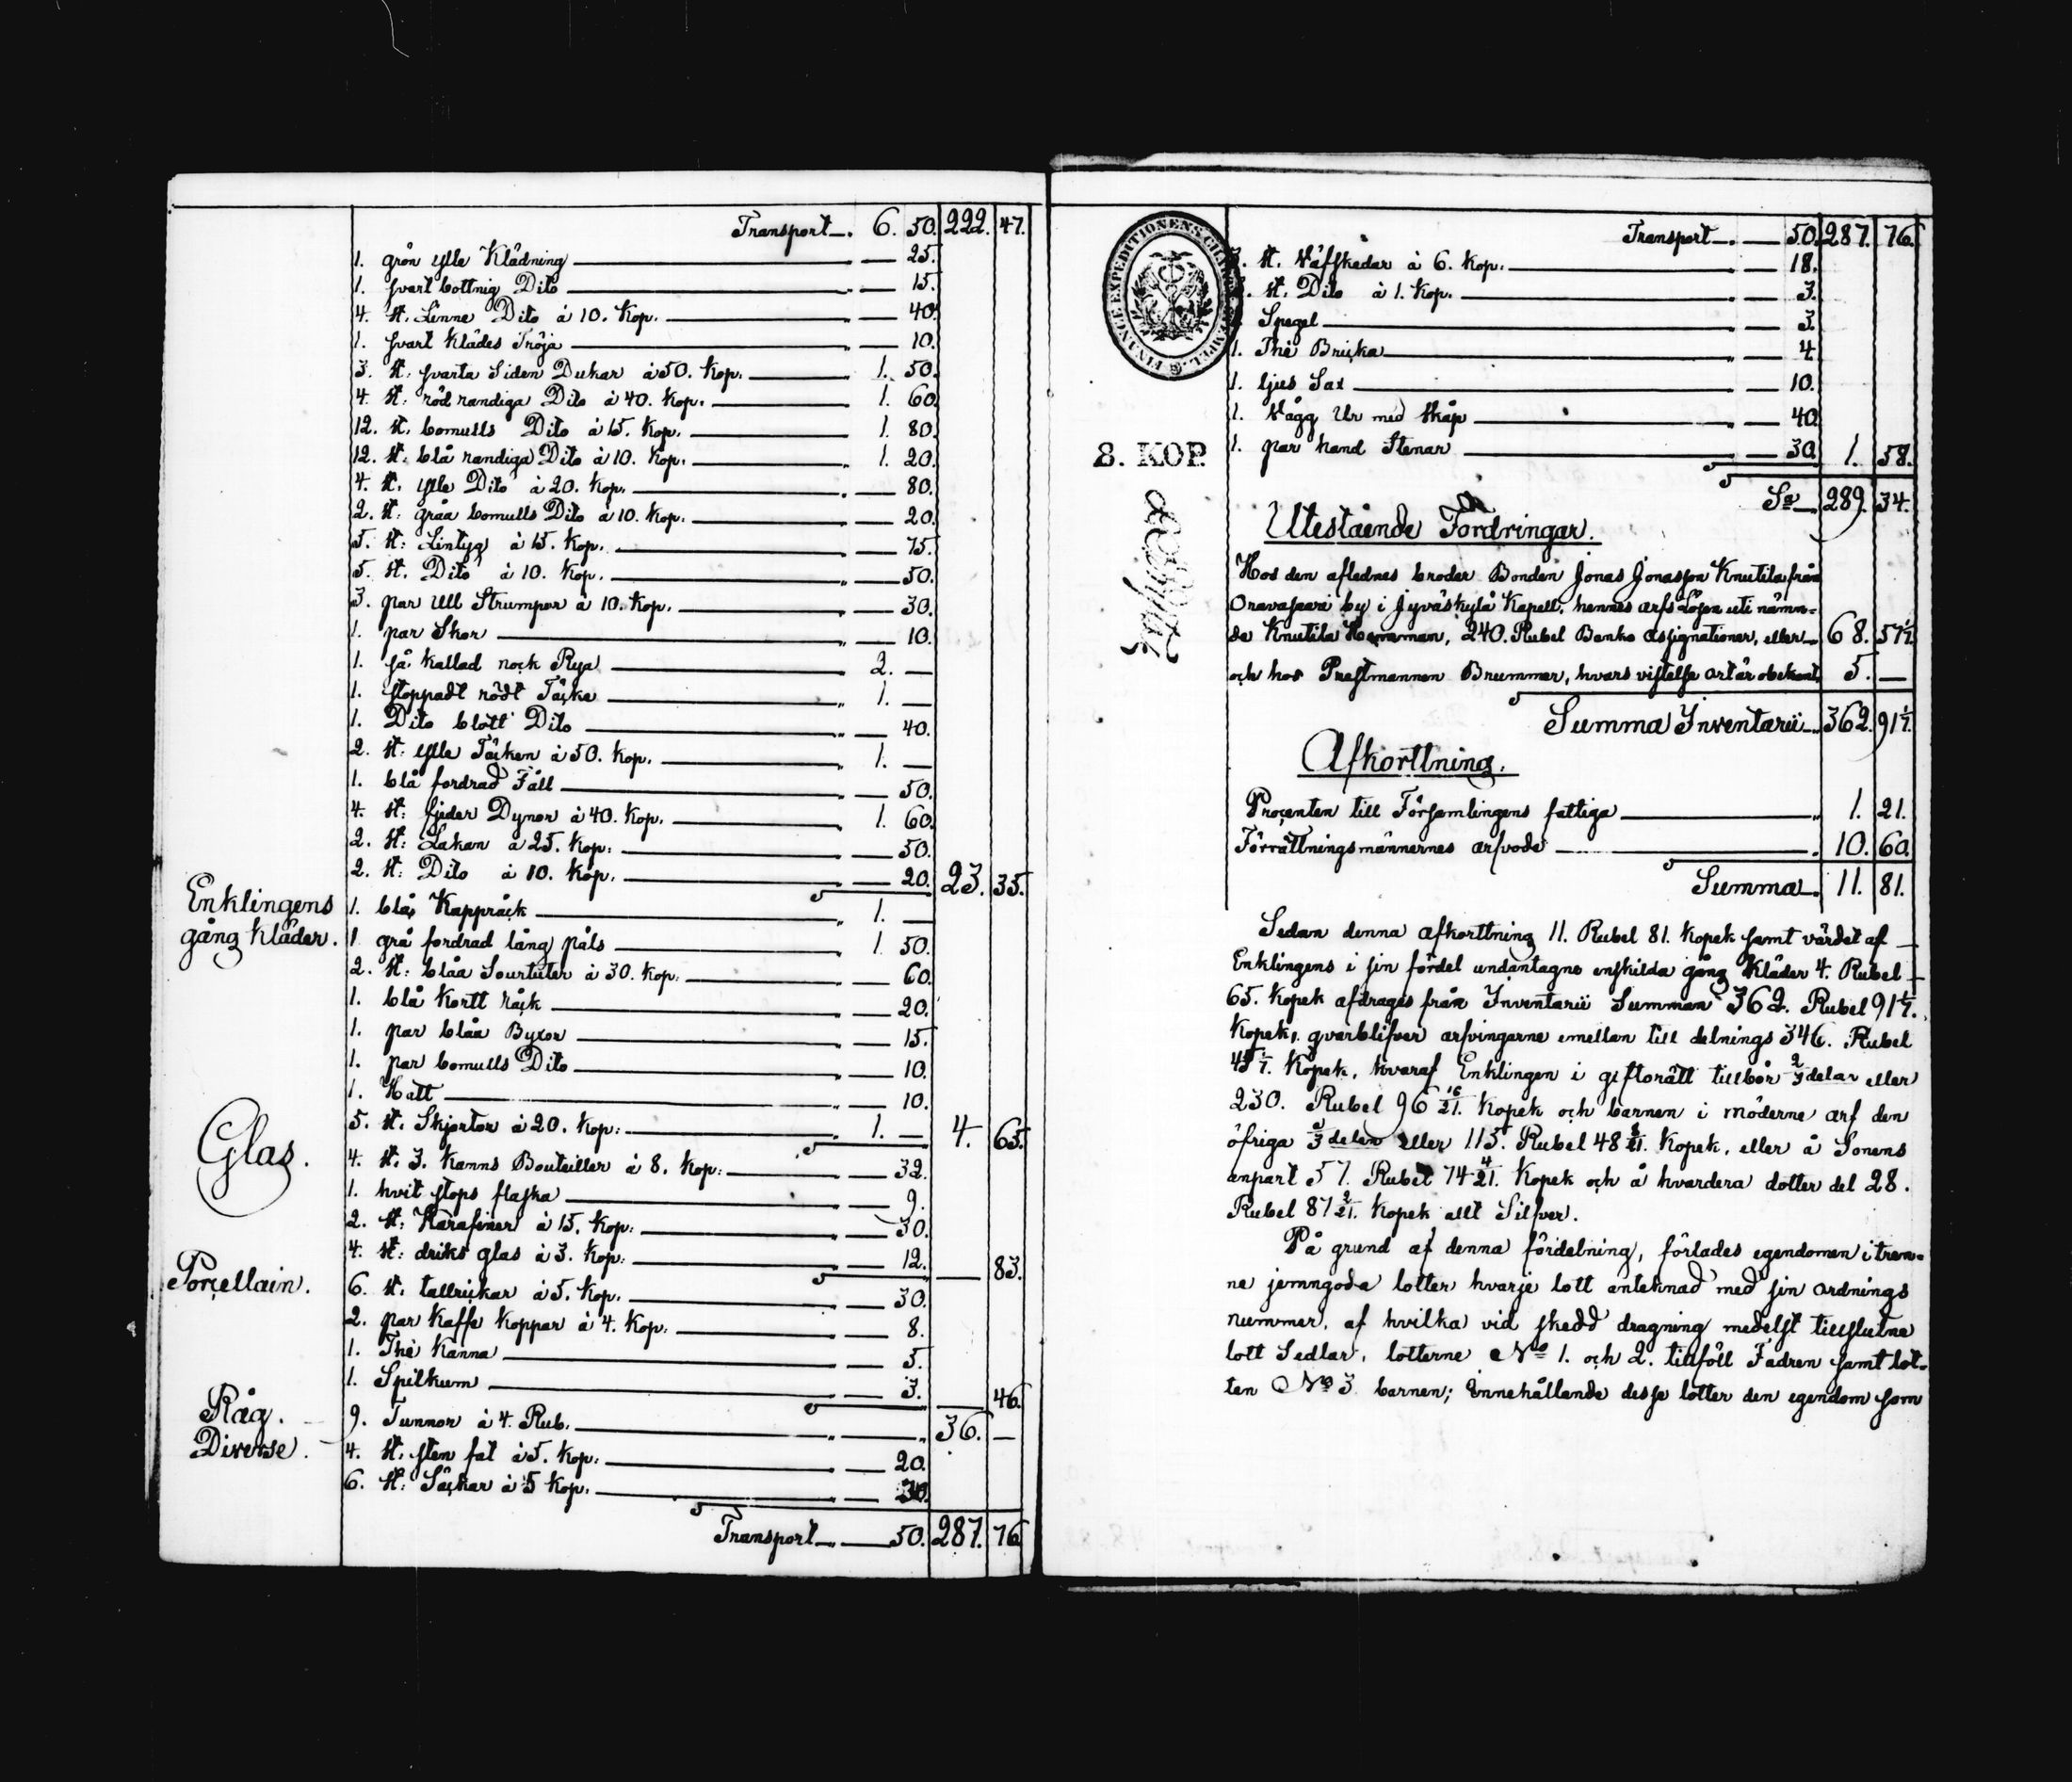 Transport 6. 50. 222. 47.
1. grön ylle Klädning — 25.
1. svart bottnig Dito — 15.
4. st. Linne Dito à 10. Kop. — 40.
1. svart Klädes Tröja — 10.
3. st. svarta Siden Dukar à 50. Kop. 1. 50.
4. st: röd randiga Dito à 40. Kop. 1. 60.
12. st. bomulls Dito à 15. Kop. 1. 80.
12. st: blå randiga Dito à 10. Kop. 1. 20.
4. st. ylle Dito à 20. Kop. — 80.
2. st: gråa bomulls Dito à 10. Kop. — 20.
5. st: Lintyg à 15. Kop. — 75.
5. st. Dito à 10. Kop. — 50.
3. par Ull Strumpor à 10. Kop. — 30.
1. par Skor — 10.
1. så kallad nock Rya 2. —
1. stoppadt rödt Täcke 1. —
1. Dito blått Dito — 40.
2. st: ylle Täcken à 50. Kop. 1. —
1. blå fordrad Fäll — 50.
4. st: fjeder Dynor à 40. Kop. 1. 60.
2. st: Lakan à 25. Kop: — 50.
2. st: Dito à 10. Kop. — 20. 23. 35.
Enklingens
gång Kläder.
1. blå Kappråck 1. —
1 grå fordrad lång päls 1. 50.
2. st: blåa Sourtuter à 30. Kop: — 60.
1. blå Kortt råck — 20.
1. par blåa Byxor — 15.
1. par bomulls Dito — 10.
1. Hatt — 10.
5. st. Skjortor à 20. Kop: 1. — 4. 65.
Glas.
4. st. 3. Kanns Bouteiller à 8. Kop: — 32.
1. hvit stops flaska — 9.
2. st: Karafiner à 15. Kop: — 30.
4. st: driks glas à 3. Kop: — 12. — 83.
Porcellain.
6. st. tallrickar à 5. Kop. — 30.
2. par Kaffe Koppar à 4. Kop: — 8.
1. Thé Kanna — 5.
1. Spilkum — 3. — 46.
Råg.
9. Tunnor à 4. Rub. — 36. —
Diverse.
4. st. sten fat à 5. Kop: — 20.
6. st: Säckar à 5 Kop. — 30.
Transport — 50. 287. 76
FINANCE EXPEDITIONENS
8. KOP.
Transport — 50. 287. 76.
st. Väfskedar à 6. Kop. — 18.
st. Dito à 1. Kop. — 3.
Spegel — 3.
1. Thé Bricka — 4
1. ljus Sax — 10.
1. Vägg Ur med Skåp — 40.
1. par hand Stenar — 30. 1. 58.
Sa 289. 34.
Utestående Fordringar.
Hos den aflednes broder Bonden Jonas Jonasson Knutila från
Oravasaari by i Jyväskylä Kapell, hennes arfs Lösen uti nämn-
de Knutila Hemman, 240. Rubel Banko Assignationer, eller 68. 57 1/7.
och hos Prestmannen Brummer, hvars vistelse ort är obekant, 5. —
Summa Inventarii 362. 91 1/7.
Afkorttning.
Procenten till Församlingens fattiga 1. 21.
Förrättningsmännernes arfvode 10. 60.
Summa 11. 81.
Sedan denna afkorttning 11. Rubel 81. Kopek samt värdet af
Enklingens i sin fördel undantagne enskilda gång Kläder 4. Rubel
65. Kopek afdrages från Inventarii Summan 362. Rubel 91 1/7.
Kopek, qvarblifver arfvingarne emellan till delnings 346. Rubel
45 1/7. Kopek, hvaraf Enklingen i giftorätt tillkör 2/3 delar eller
230. Rubel 96 16/21. Kopek och barnen i möderne arf den
öfriga 1/3 delen eller 115. Rubel 48 8/21. Kopek, eller å Sonens
anpart 57. Rubel 74 4/21. Kopek och å hvardera dotter del 28.
Rubel 87 2/21. Kopek allt Silfver.
På grund af denna fördelning, förlades egendomen i tren-
ne jemngoda lotter hvarje lott anteknad med sin ordnings
nummer, af hvilka vid skedd dragning medelst tillslutne
lott Sedlar, lotterne No 1. och 2. tillföll Fadren samt lot-
ten No 3 barnen; Innehållande desse lotter den egendom som